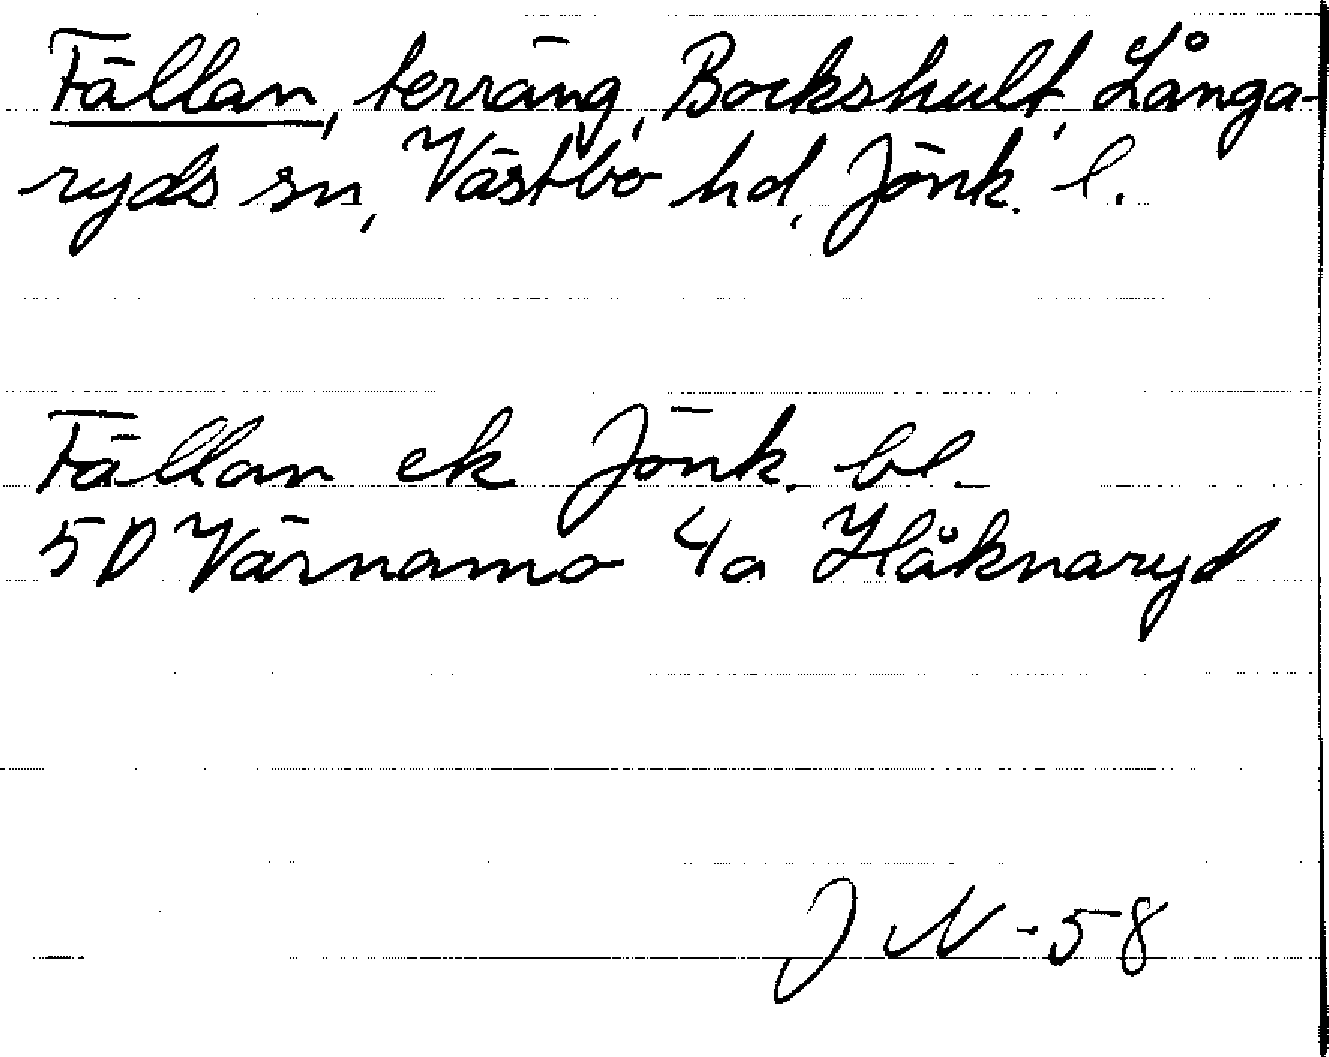 Fällan, terräng, Bockshult, Långa-
ryds sn, Västbo hd, Jönk. l.
Fällan ek Jönk. bl.
5D Värnamo 4a Håknaryd
J N -58